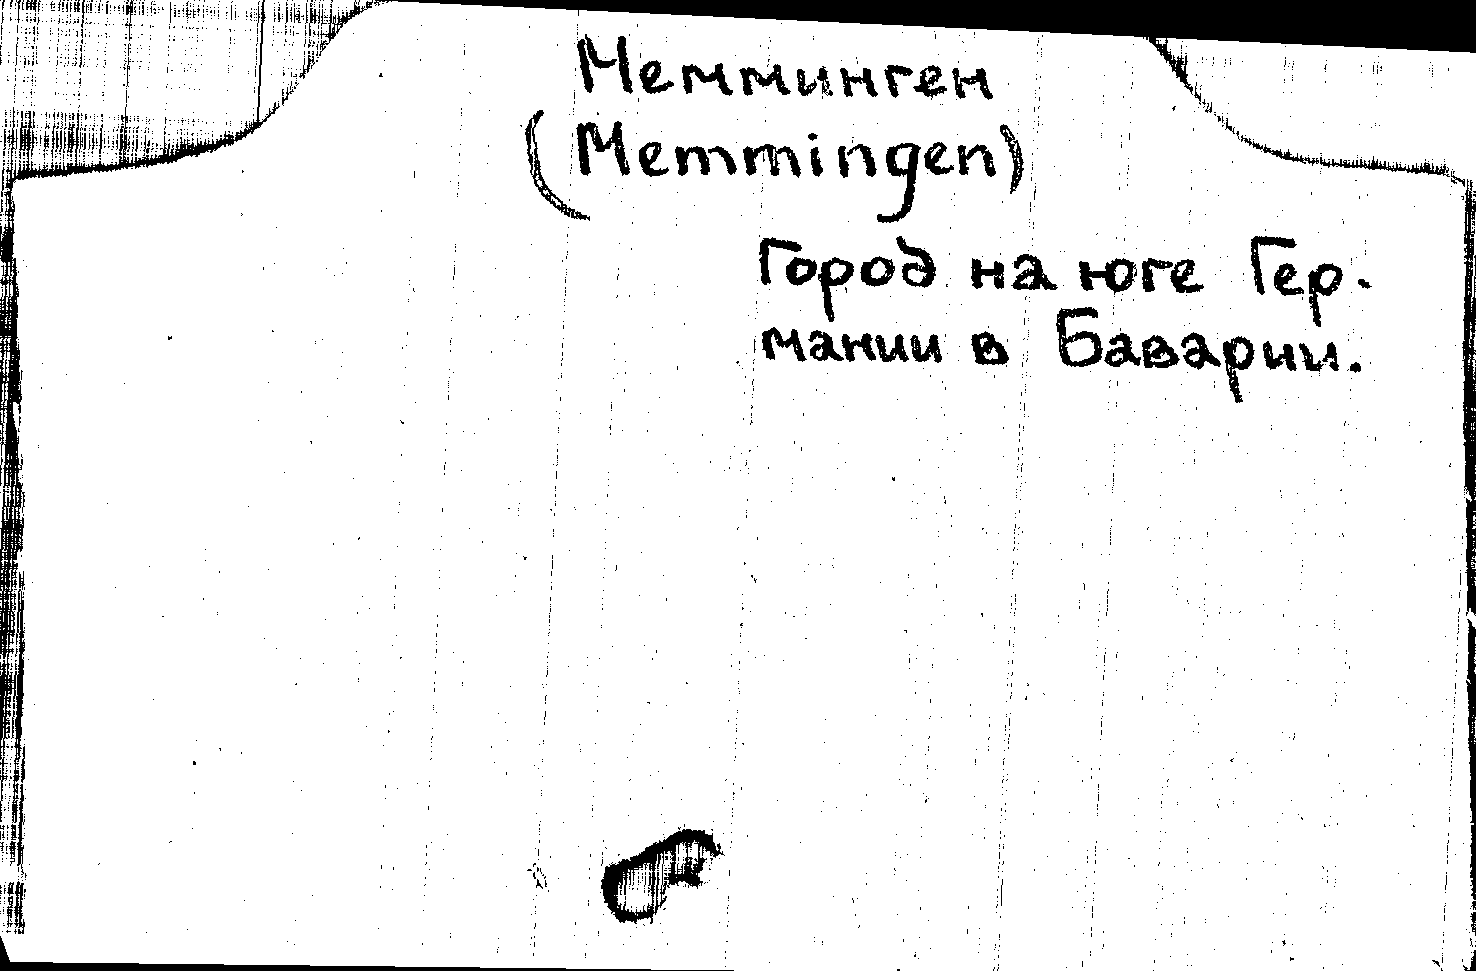 Мемминген
(Memmingen)
Город на юге Гер-
мании в Баварии.